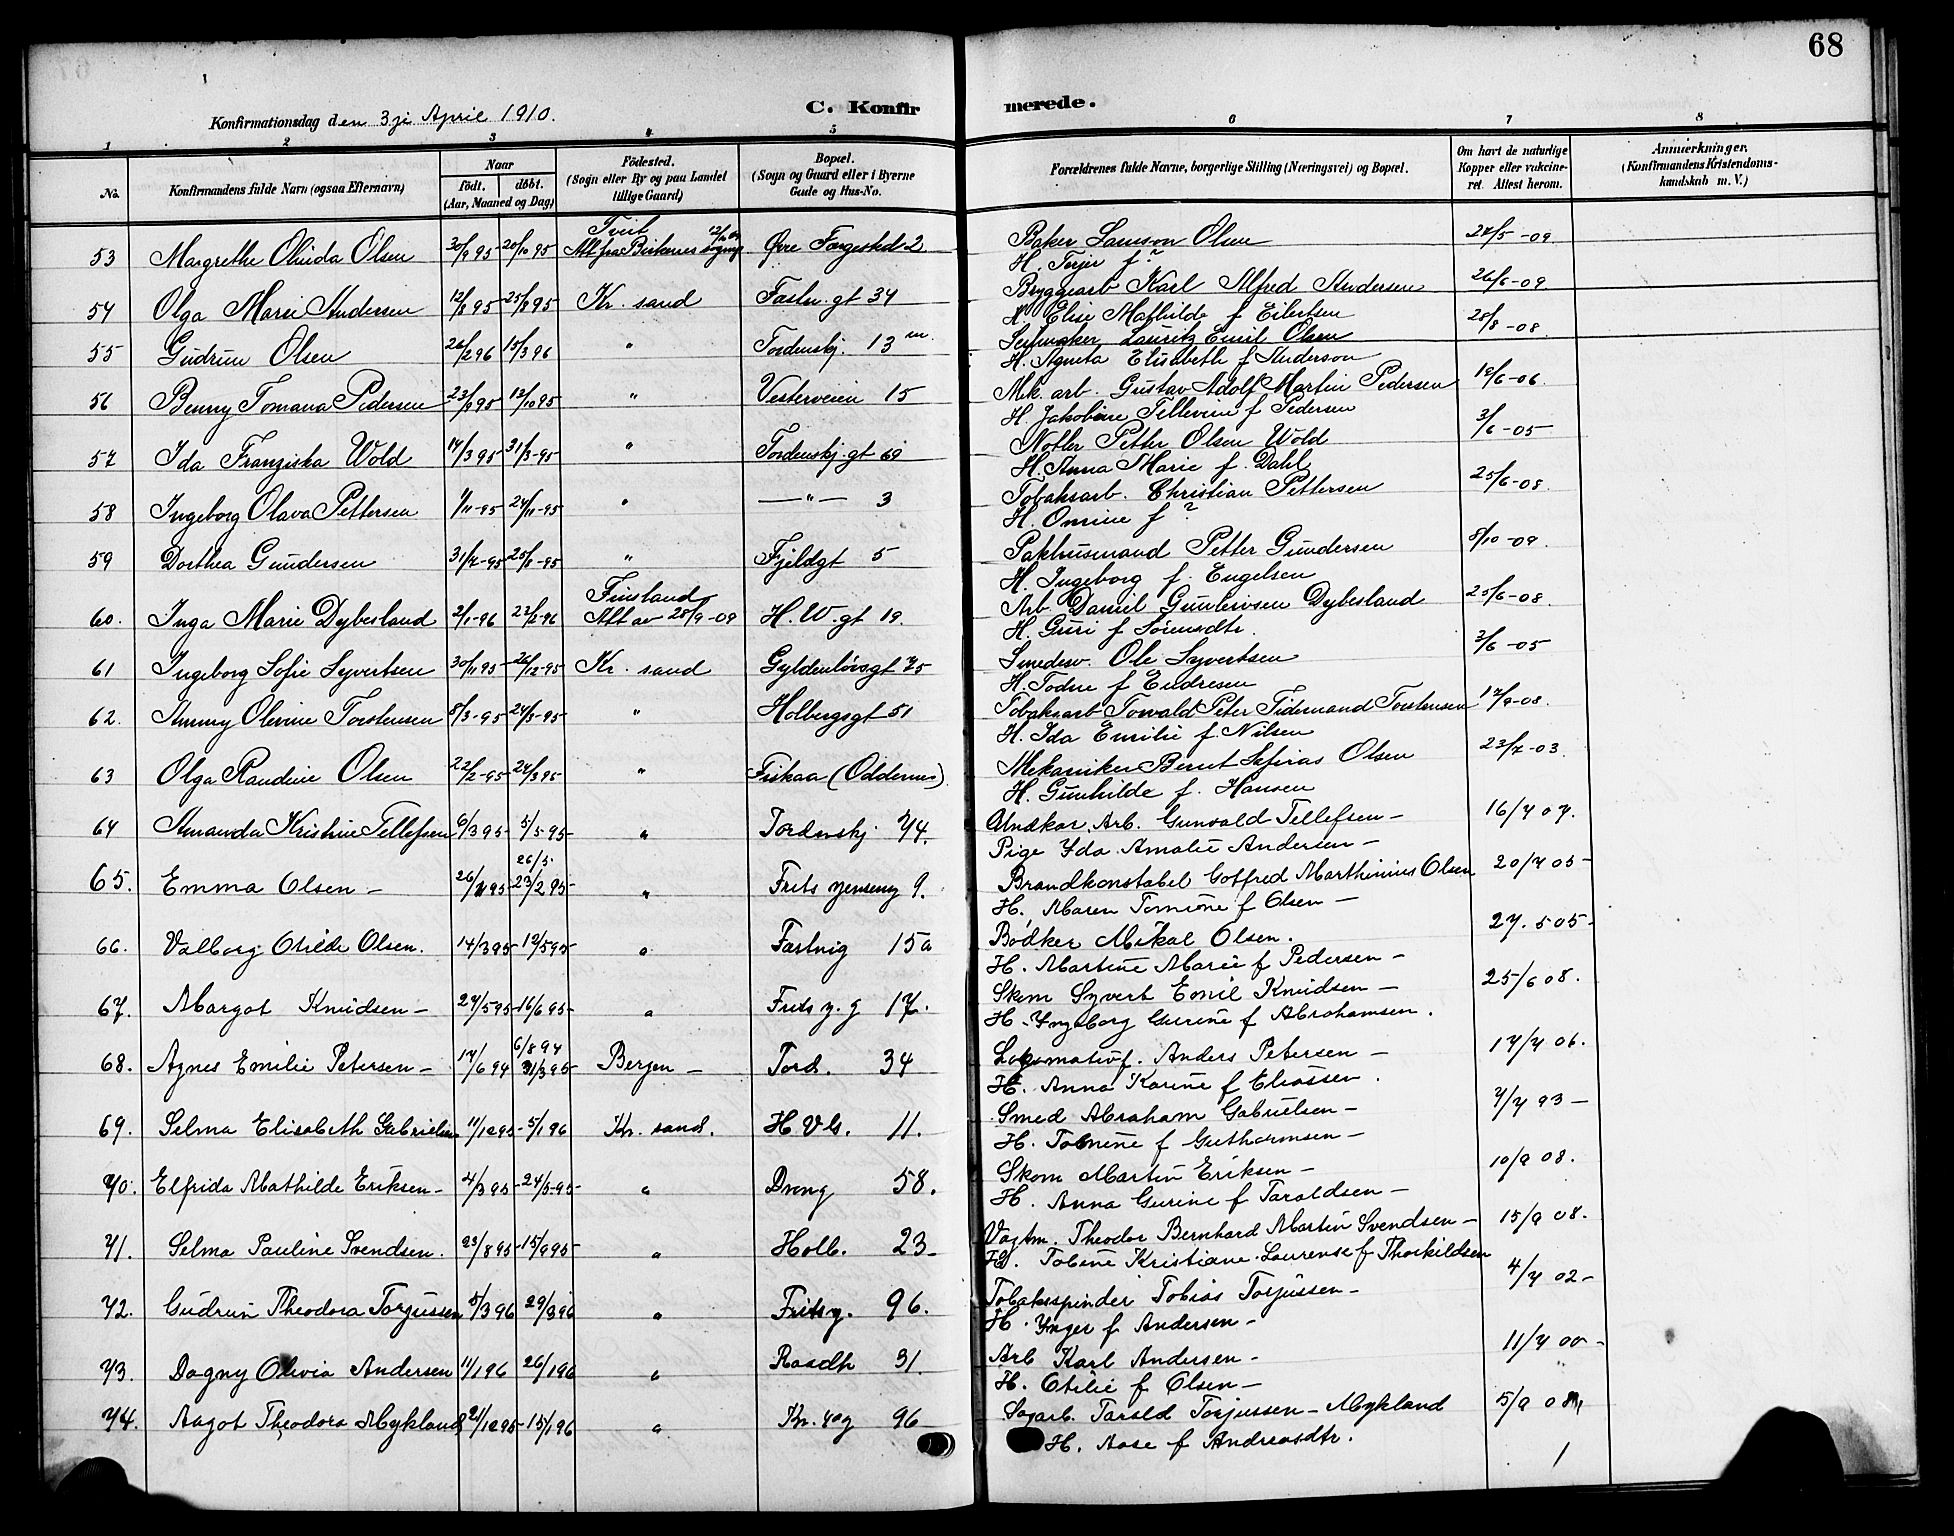 68
Konfirmationsdag den 3je April 1910.
C. Konfirmerede.
1 2 3 4 5 6 7 8
No. Konfirmandens fulde Navn (ogsaa Efternavn) Naar födt. döbt. (Aar, Maaned og Dag) Födested. (Sogn eller By og paa Landet tillige Gaard) Bopæl. (Sogn og Gaard eller i Byerne Gade og Hus-No. Forældrenes fulde Navne, borgerlige Stilling (Næringsvei) og Bopæl. Om havt de naturlige Kopper eller vakcineret. Attest herom. Anmærkninger. (Konfirmandens Kristendomskundskab m. V.)
53 Margrethe Olinda Olsen 30/9 95 20/10 95 Tveit Att fra Birkenes Øvre Torgestad 2 Baker Samson Olsen 24/5-09
H. Terjer f ?
54 Olga Marie Andersen 12/8 95 25/8 95 Kr. sand Fastn. gt 34 Bryggearb Karl Alfred Andersen 26/6-09
H. Elise Mathilde f Eilertsen
55 Gudrun Olsen 26/2 96 15/3 96 " Tordenskj. 13 Seilmaker Lauritz Emil Olsen 28/8-08
H. Agneta Elisabeth f Anderson
56 Benny Tomana Pedersen 23/9 95 13/10 95 " Vesterveien 15 Mek. arb. Gustav Adolf Martin Pedersen 12/6-06
H. Jakobine Tellevine f Pedersen
57 Ida Franziska Wold 14/3 95 31/3-95 " Tordenskj. gt 69 Notler Petter Olsen Wold 3/6-05
H. Anna Marie f. Dahl
58 Ingeborg Olava Pettersen 1/11-95 24/11-95 " —"— 3 Tobaksarb. Christian Pettersen 25/6-08
H. Omine f ?
59 Dorthea Gundersen 31/7-95 25/8-95 " Fjeldgt 5 Pakhusmand Petter Gundersen 8/10-09
H. Ingeborg f. Engelsen
60. Inga Marie Dybesland 2/1-96 22/2-96 Finsland Att av 28/9-09 H. W. gt 19. Arb Daniel Gunleivsen Dybesland 25/6-08
H. Guri f Sörensdtr.
61 Ingeborg Sofie Syvertsen 30/11 95 26/12-95 Kr. sand Gyldenlövsgt 75 Smedesv. Ole Syvertsen 3/6-05
H. Todne f Endresen
62. Ammy Olevine Torstensen 8/3-95 24/3-95 " Holbergsgt 51 Tobaksarb Torvald Peter Tidemand Torstensen 17/9-08.
H. Ida Emilie f Nilsen
63 Olga Randine Olsen 22/2-95 24/3 95 " Fiskaa (Oddernes) Mekaniker Bernt Sefinas Olsen 23/7-03
H. Gunhilde f. Hansen
64 Amanda Kristine Tellefsen 6/3 95 5/5-95 " Tordenskj. 74. Undkar. Arb. Gunvald Tellefsen — 16/7 07.
Pige Yda Amalie Andersen —
65. Emma Olsen — 26/1 95 26/5 23/2 95 " Frits Yensensg 9. Brandkonstabel Gotfred Marthinius Olsen 20/7 05—
H. Maren Tomine f Olsen —
66. Valborg Otilde Olsen. 14/3 95 12/5 95 " Fastnig 15a Bödker Mikal Olsen. 27. 5 05—
H. Martine Marie f Pedersen —
67. Margot Knudsen — 27/5 95 16/6 95 " Frits y. g 17. Skom Syvert Emil Knudsen — 25/6 08.
H. Yngeborg Gurine f Abrahamsen.
68. Agnes Emilie Petersen — 17/6 94 6/8 94 31/3 95 Bergen — Tord. 34 Lokomotivf. Anders Petersen — 17/7 06.
H. Anna Karine f Eliassen.
69. Selma Elisabeth Gabrielsen 11/12 95 5/1 96 Kr. sand. H. Vb. 11. Smed Abraham Gabrielsen — 7/7 93 —
H. Tomine f Guthormsen —
70. Elfrida Mathilde Eriksen — 4/3 95 24/5-95 " Drong 58. Skom Martin Eriksen — 10/9 08.
H. Anna Gurine f Taraldsen —
71. Selma Pauline Svendsen. 23/8 95 15/9 95 " Holb. 23— Vagtm. Theodor Bernhard Martin Svendsen — 15/9 08.
H. Tobine Kristiane Laurense f Thorkildsen
72. Gudrun Theodora Torjussen 5/3 96 29/3 96 " Frits y. 96. Tobakspinder Tobias Torjussen — 4/7 02—
H. Ynger f Andersen —
73. Dagny Olivia Andersen 11/1 96 26/1 96 " Raadh 31. Arb Karl Andersen — 11/7 00—
H. Otilie f Olsen —
74. Aagot Theodora Mykland 21/12 95 15/1 96 " Kr. 4ag 96 Sagarb. Tarald Torjussen — Mykland 5/9 08
H. Aase f Andreasdtr.